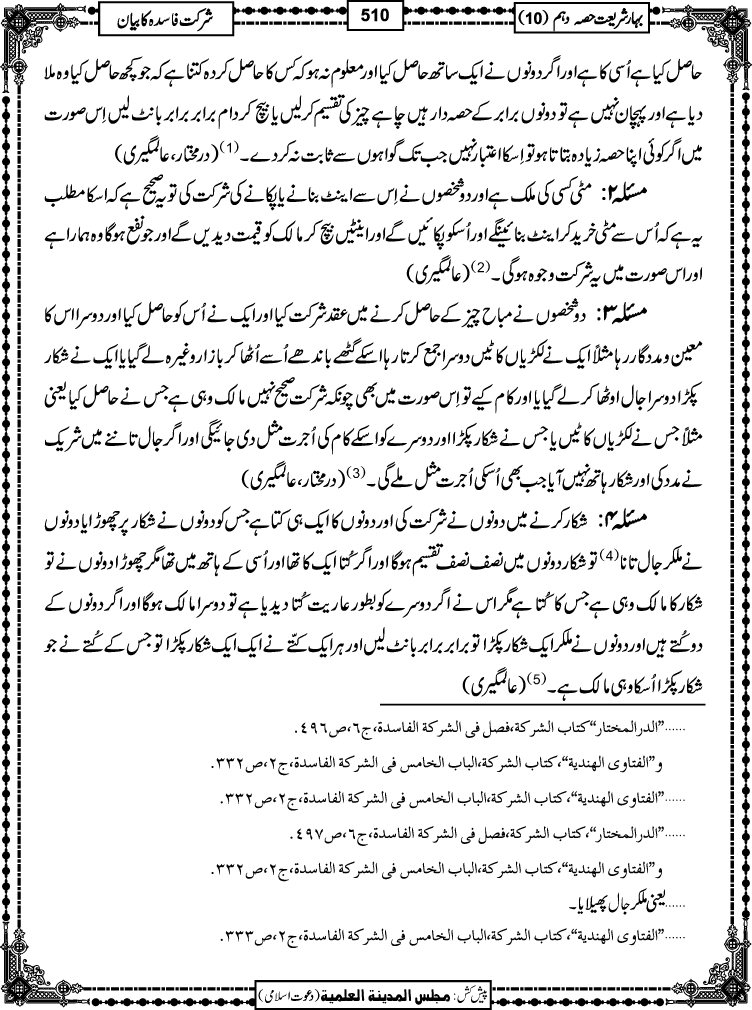 بہارِ شریعت حصہ دہم (10)
510
شرکت فاسدہ کا بیان
حاصل کیا ہے اُسی کا ہے اور اگر دونوں نے ایک ساتھ حاصل کیا اور معلوم نہ ہو کہ کس کا حاصل کردہ کتنا ہے کہ جو کچھ حاصل کیا وہ ملا
دیا ہے اور پہچان نہیں ہے تو دونوں برابر کے حصہ دار ہیں چاہے چیز کی تقسیم کرلیں یا بیچ کر دام برابر برابر بانٹ لیں اِس صورت
میں اگر کوئی اپنا حصہ زیادہ بتاتا ہو تو اِسکا اعتبار نہیں جب تک گواہوں سے ثابت نہ کردے۔(1) (درمختار، عالمگیری)
مسئلہ ۲: مٹی کسی کی ملک ہے اور دو شخصوں نے اِس سے اینٹ بنانے یا پکانے کی شرکت کی تو یہ صحیح ہے کہ اسکا مطلب
یہ ہے کہ اُس سے مٹی خرید کر اینٹ بنائینگے اور اُسکو پکائیں گے اور اینٹیں بیچ کر مالک کو قیمت دیدیں گے اور جو نفع ہوگا وہ ہمارا ہے
اور اس صورت میں یہ شرکت وجوہ ہوگی۔(2) (عالمگیری)
مسئلہ ۳: دو شخصوں نے مباح چیز کے حاصل کرنے میں عقد شرکت کیا اور ایک نے اُس کو حاصل کیا اور دوسرا اس کا
معین و مددگار رہا مثلاً ایک نے لکڑیاں کاٹیں دوسرا جمع کرتا رہا اسکے گٹھے باندھے اُسے اُٹھا کر بازار وغیرہ لے گیا یا ایک نے شکار
پکڑا دوسرا جال اوٹھا کر لے گیا یا اور کام کیے تو اِس صورت میں بھی چونکہ شرکت صحیح نہیں مالک وہی ہے جس نے حاصل کیا یعنی
مثلاً جس نے لکڑیاں کاٹیں یا جس نے شکار پکڑا اور دوسرے کو اسکے کام کی اُجرت مثل دی جائیگی اور اگر جال تاننے میں شریک
نے مدد کی اور شکار ہاتھ نہیں آیا جب بھی اُسکی اُجرت مثل ملے گی۔(3) (درمختار، عالمگیری)
مسئلہ ۴: شکار کرنے میں دونوں نے شرکت کی اور دونوں کا ایک ہی کتا ہے جس کو دونوں نے شکار پر چھوڑا یا دونوں
نے ملکر جال تانا(4) تو شکار دونوں میں نصف نصف تقسیم ہوگا اور اگر کُتا ایک کا تھا اور اُسی کے ہاتھ میں تھا مگر چھوڑا دونوں نے تو
شکار کا مالک وہی ہے جس کا کُتا ہے مگر اس نے اگر دوسرے کو بطور عاریت کُتا دیدیا ہے تو دوسرا مالک ہوگا اور اگر دونوں کے
دو کُتے ہیں اور دونوں نے ملکر ایک شکار پکڑا تو برابر برابر بانٹ لیں اور ہر ایک کتّے نے ایک ایک شکار پکڑا تو جس کے کُتے نے جو
شکار پکڑا اُسکا وہی مالک ہے۔(5) (عالمگیری)
......”الدرالمختار“کتاب الشرکة،فصل فی الشرکة الفاسدة،ج٦،ص٤٩٦.
و”الفتاوی الهندیة“،کتاب الشرکة،الباب الخامس فی الشرکة الفاسدة،ج٢،ص٣٣٢.
......”الفتاوی الهندیة“،کتاب الشرکة،الباب الخامس فی الشرکة الفاسدة،ج٢،ص٣٣٢.
......”الدرالمختار“،کتاب الشرکة،فصل فی الشرکة الفاسدة،ج٦،ص٤٩٧.
و”الفتاوی الهندیة“،کتاب الشرکة،الباب الخامس فی الشرکة الفاسدة،ج٢،ص٣٣٢.
......یعنی ملکر جال پھیلایا۔
......”الفتاوی الهندیة“،کتاب الشرکة،الباب الخامس فی الشرکة الفاسدة،ج٢،ص٣٣٣.
پیش کش: مجلس المدینة العلمیة (دعوت اسلامی)